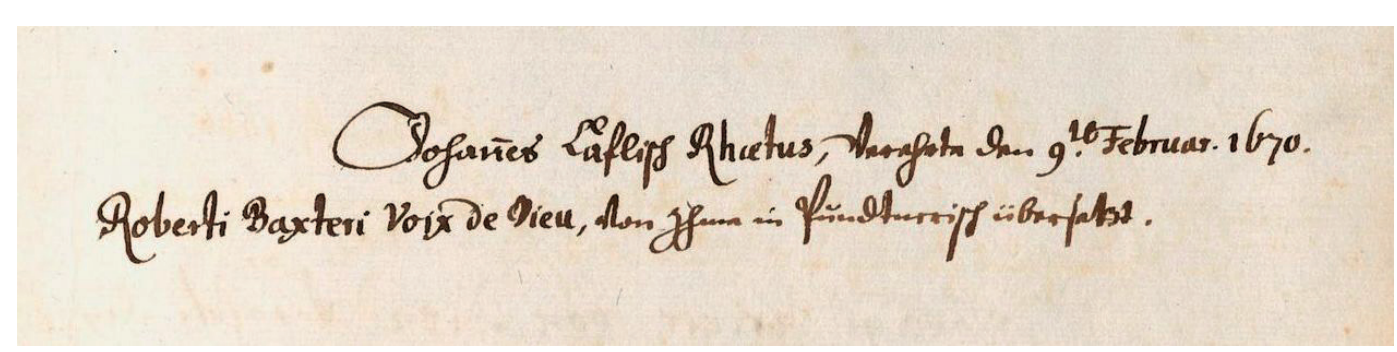 Johan̄es Cäflisch Rhætus, Verehrte den 9.ᵗᵉ Februar. 1670.
Roberti Baxteri Voix de Dieu, von Ihme in Pündtnerisch übersetzt.